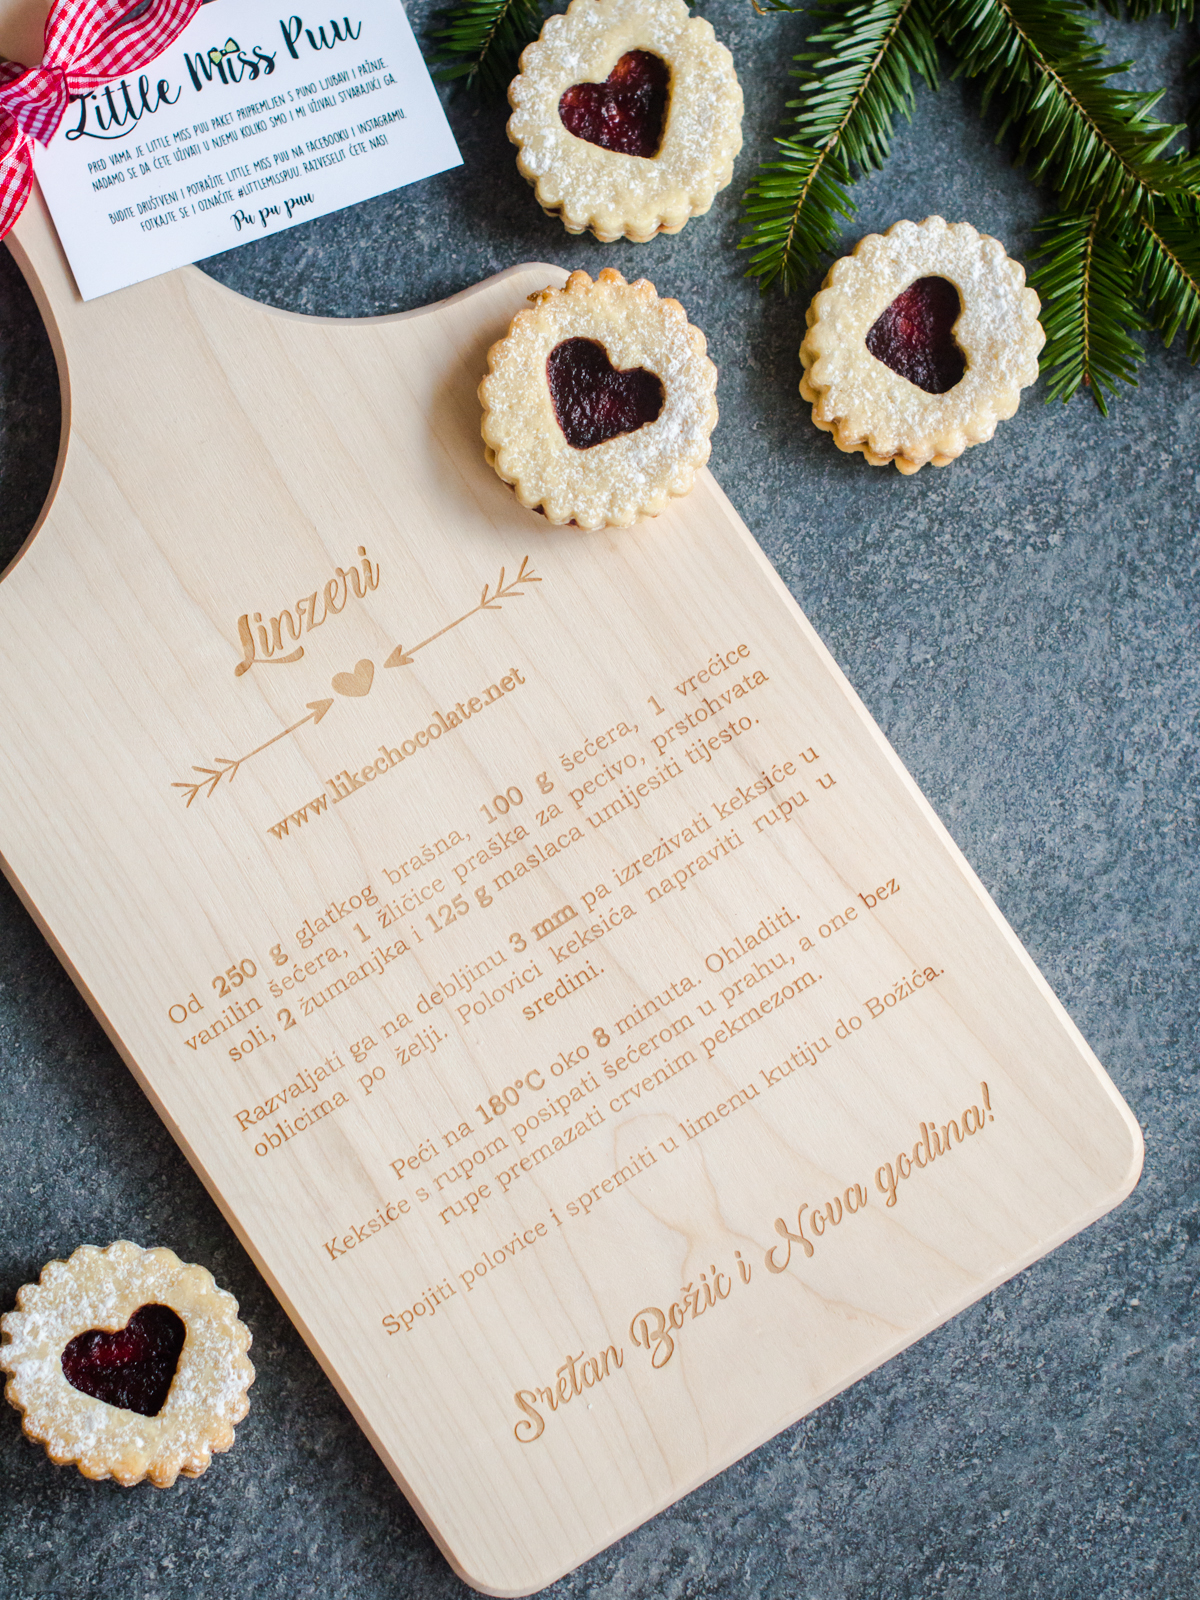 Little Miss Puu
PRED VAMA JE LITTLE MISS PUU PAKET PRIPREMLJEN S PUNO LJUBAVI I PAŽNJE.
NADAMO SE DA ĆETE UŽIVATI U NJEMU KOLIKO SMO I MI UŽIVALI STVARAJUĆI GA.
BUDITE DRUŠTVENI I POTRAŽITE LITTLE MISS PUU NA FACEBOOKU I INSTAGRAMU.
FOTKAJTE SE I OZNAČITE #LITTLEMISSPUU. RAZVESELIT ĆETE NAS!
Pu pu puu
Linzeri
www.likechocolate.net
Od 250 g glatkog brašna, 100 g šećera, 1 vrećice
vanilin šećera, 1 žličice praška za pecivo, prstohvata
soli, 2 žumanjka i 125 g maslaca umijesiti tijesto.
Razvaljati ga na debljinu 3 mm pa izrezivati keksiće u
oblicima po želji. Polovici keksića napraviti rupu u
sredini.
Peći na 180°C oko 8 minuta. Ohladiti.
Keksiće s rupom posipati šećerom u prahu, a one bez
rupe premazati crvenim pekmezom.
Spojiti polovice i spremiti u limenu kutiju do Božića.
Sretan Božić i Nova godina!